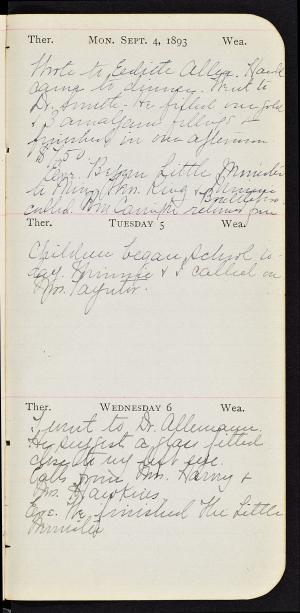 Ther. MON. SEPT. 4, 1893 Wea.
Wrote to Edith Allen.
came to dinner. Went to
Dr. Smith. He filled one gold
& 3 amalgam fillings &
finished in one afternoon
$7.50
Eve. Began Little Minister
to Mrs. King &
called. Mr. returns from
Ther. TUESDAY 5 Wea.
Children began school to-
day. Minnie & I called on
Mrs. Payntor.
Ther. WEDNESDAY 6 Wea.
I went to Dr. Allemann.
He suggest a glass fitted
close to my left eye.
Calls from Mrs. Harvy &
Mrs. Hawkins.
Eve. We finished The Little
Minister